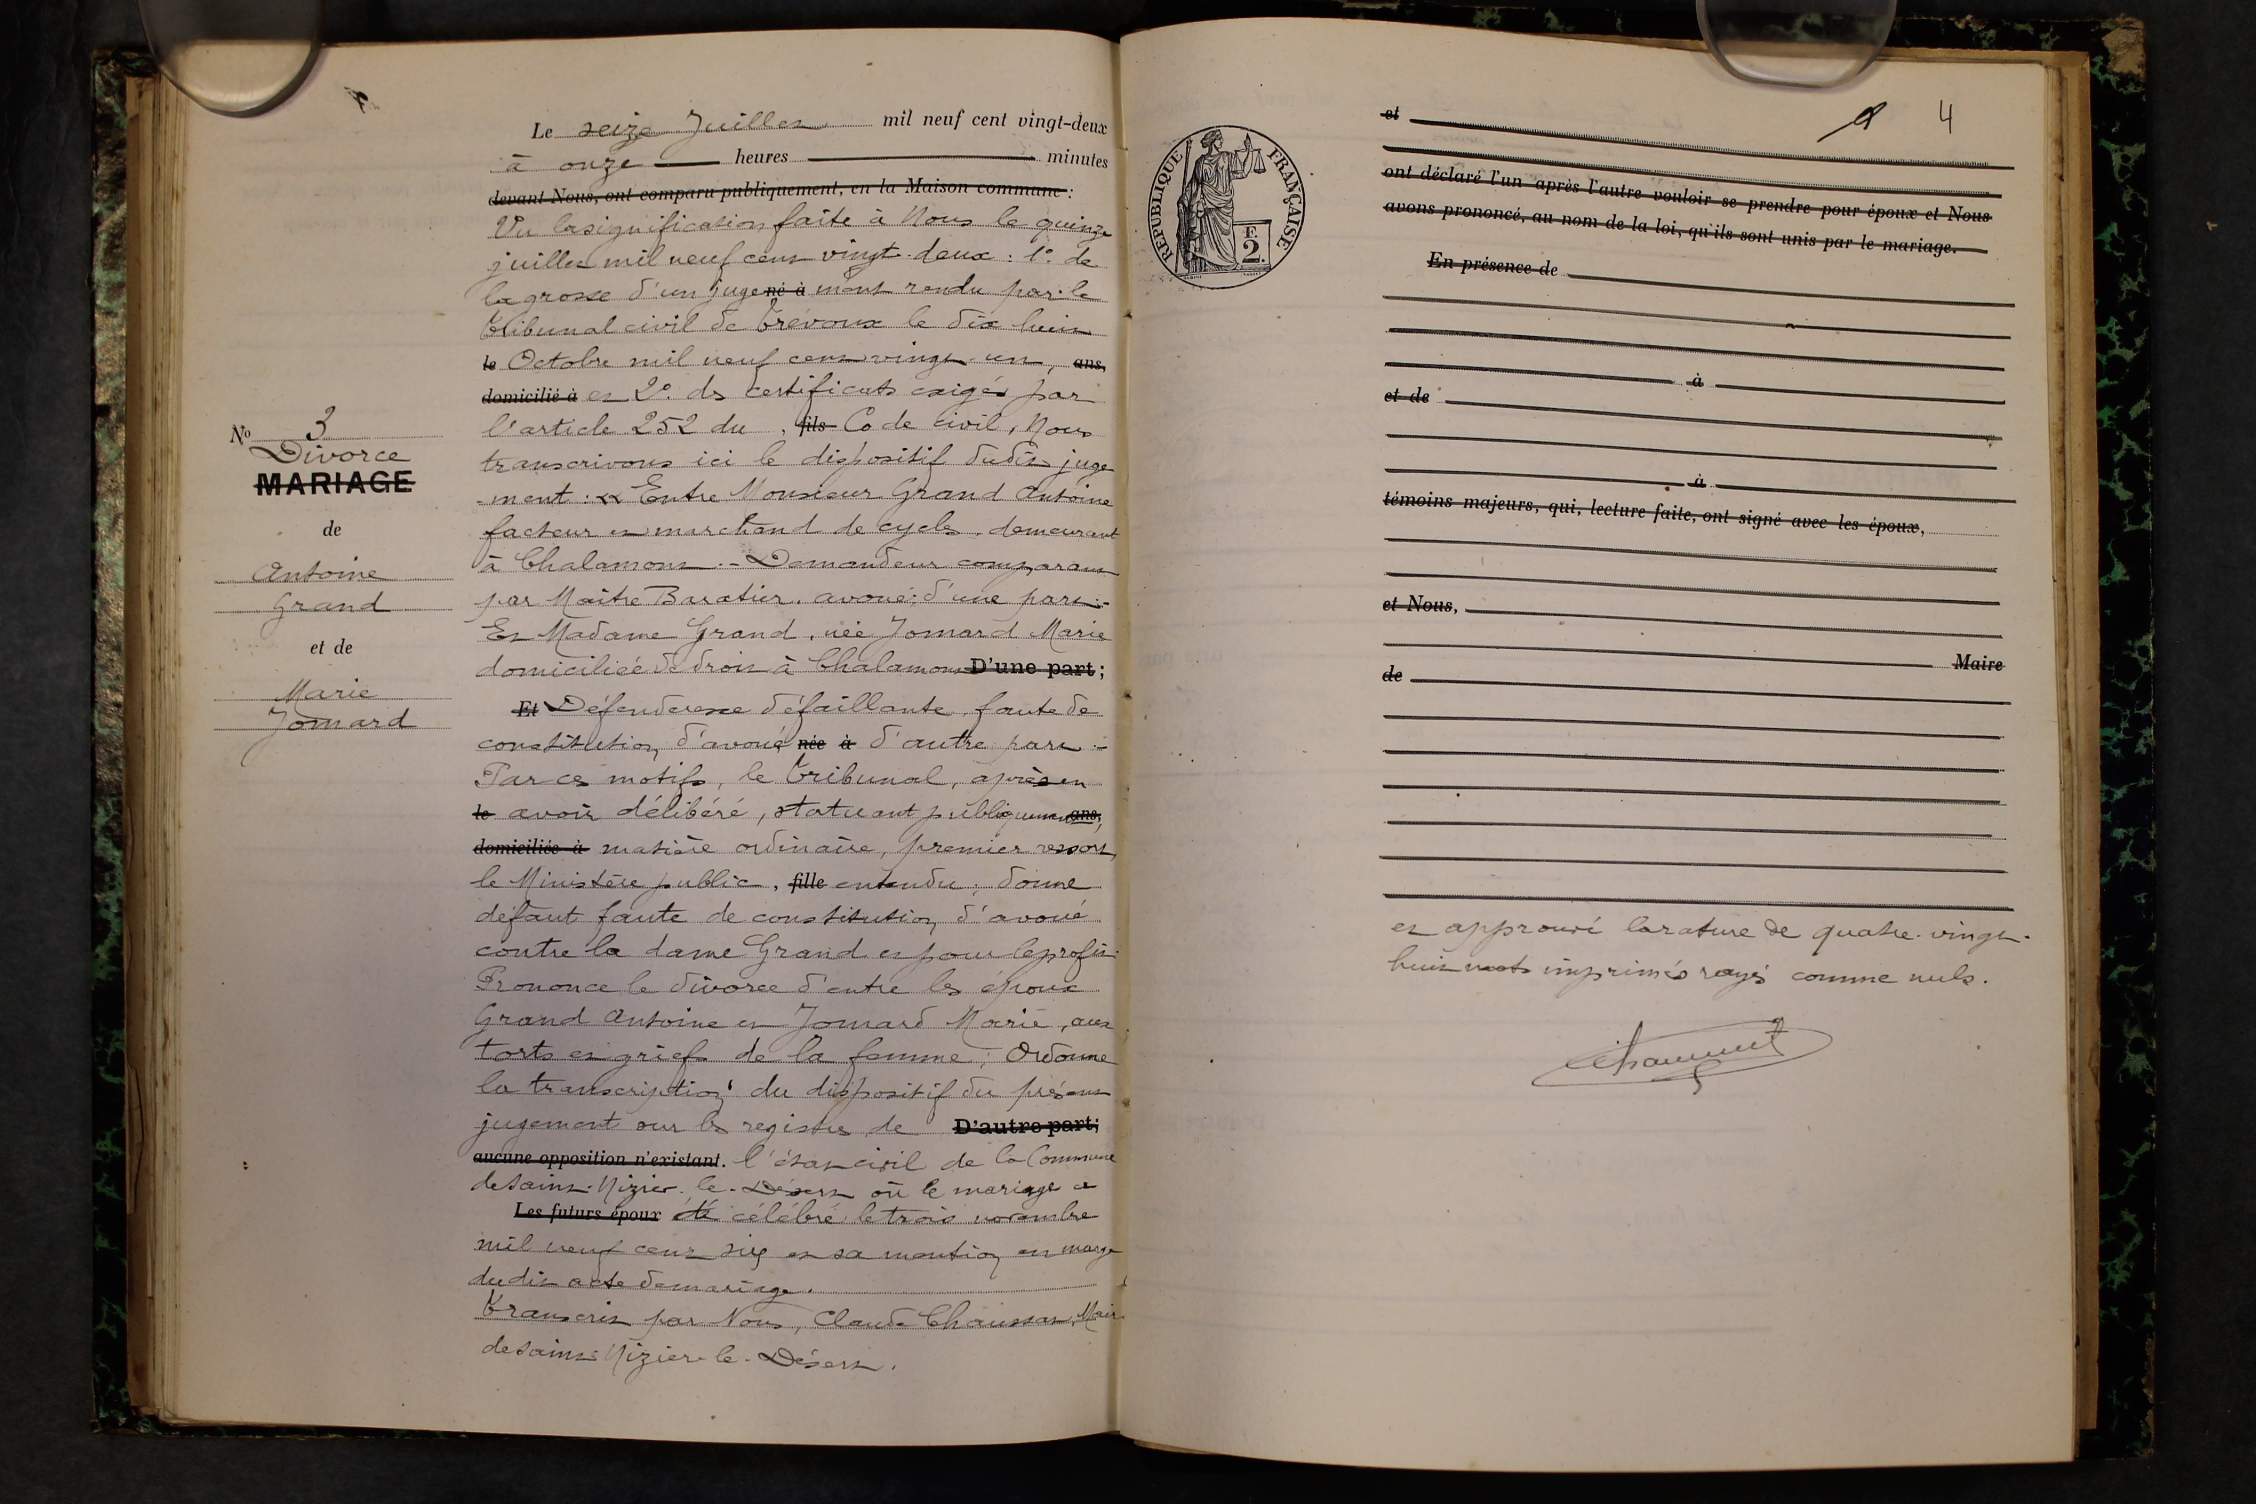 Le seize Juillet mil neuf cent vingt-deux
à onze heures minutes
devant Nous, ont comparu publiquement, en la Maison commune :
Vu la signification faite à Nous le quinze
juillet mil neuf cent vingt-deux : 1° de
la grosse d'un juge né à ment rendu par le
Tribunal civil de Trévoux le dix huit
le Octobre mil neuf cent vingt-un, ans,
domicilié à et 2° des certificats exigés par
l'article 252 du , fils Code civil, Nous
transcrivons ici le dispositif dudit juge
-ment : « Entre Monsieur Grand Antoine
facteur et marchand de cycles, demeurant
à Chalamont. - Demandeur comparant
par Maître Baratier, avoué; d'une part. -
Et Madame Grand, née Jomard Marie
domiciliée de droit à Chalamont D'une part ;
Et Défenderesse défaillante, faute de
constitution d'avoué née à d'autre part -
Par ces motifs, le Tribunal, après en
le avoir délibéré, statuant publiquement ans,
domiciliée à matière ordinaire, premier ressort,
le Ministère public, fille entendu; donne
défaut faute de constitution d'avoué
contre la dame Grand et pour le profit:
Prononce le divorce d'entre les époux
Grand Antoine et Jomard Marie, aux
torts et griefs de la femme; Ordonne
la transcription du dispositif du présent
jugement sur les registres de D'autre part;
aucune opposition n'existant. l'état civil de la Commune
de Saint-Nizier-le-Désert où le mariage a
Les futurs époux été célébré le trois novembre
mil neuf cent six et sa mention en marge
dudit acte de mariage.
Transcrit par Nous, Claude Chaussat, Maire
de Saint-Nizier-le-Désert.
N° 3
Divorce
MARIAGE
de
Antoine
Grand
et de
Marie
Jomard
4
REPUBLIQUE FRANÇAISE
F.
2.
et
ont déclaré l'un après l'autre vouloir se prendre pour époux et Nous
avons prononcé, au nom de la loi, qu'ils sont unis par le mariage.
En présence de
à
et de
à
témoins majeurs, qui, lecture faite, ont signé avec les époux,
et Nous,
Maire
de
et approuvé la rature de quatre-vingt-
huit mots imprimés rayés comme nuls.